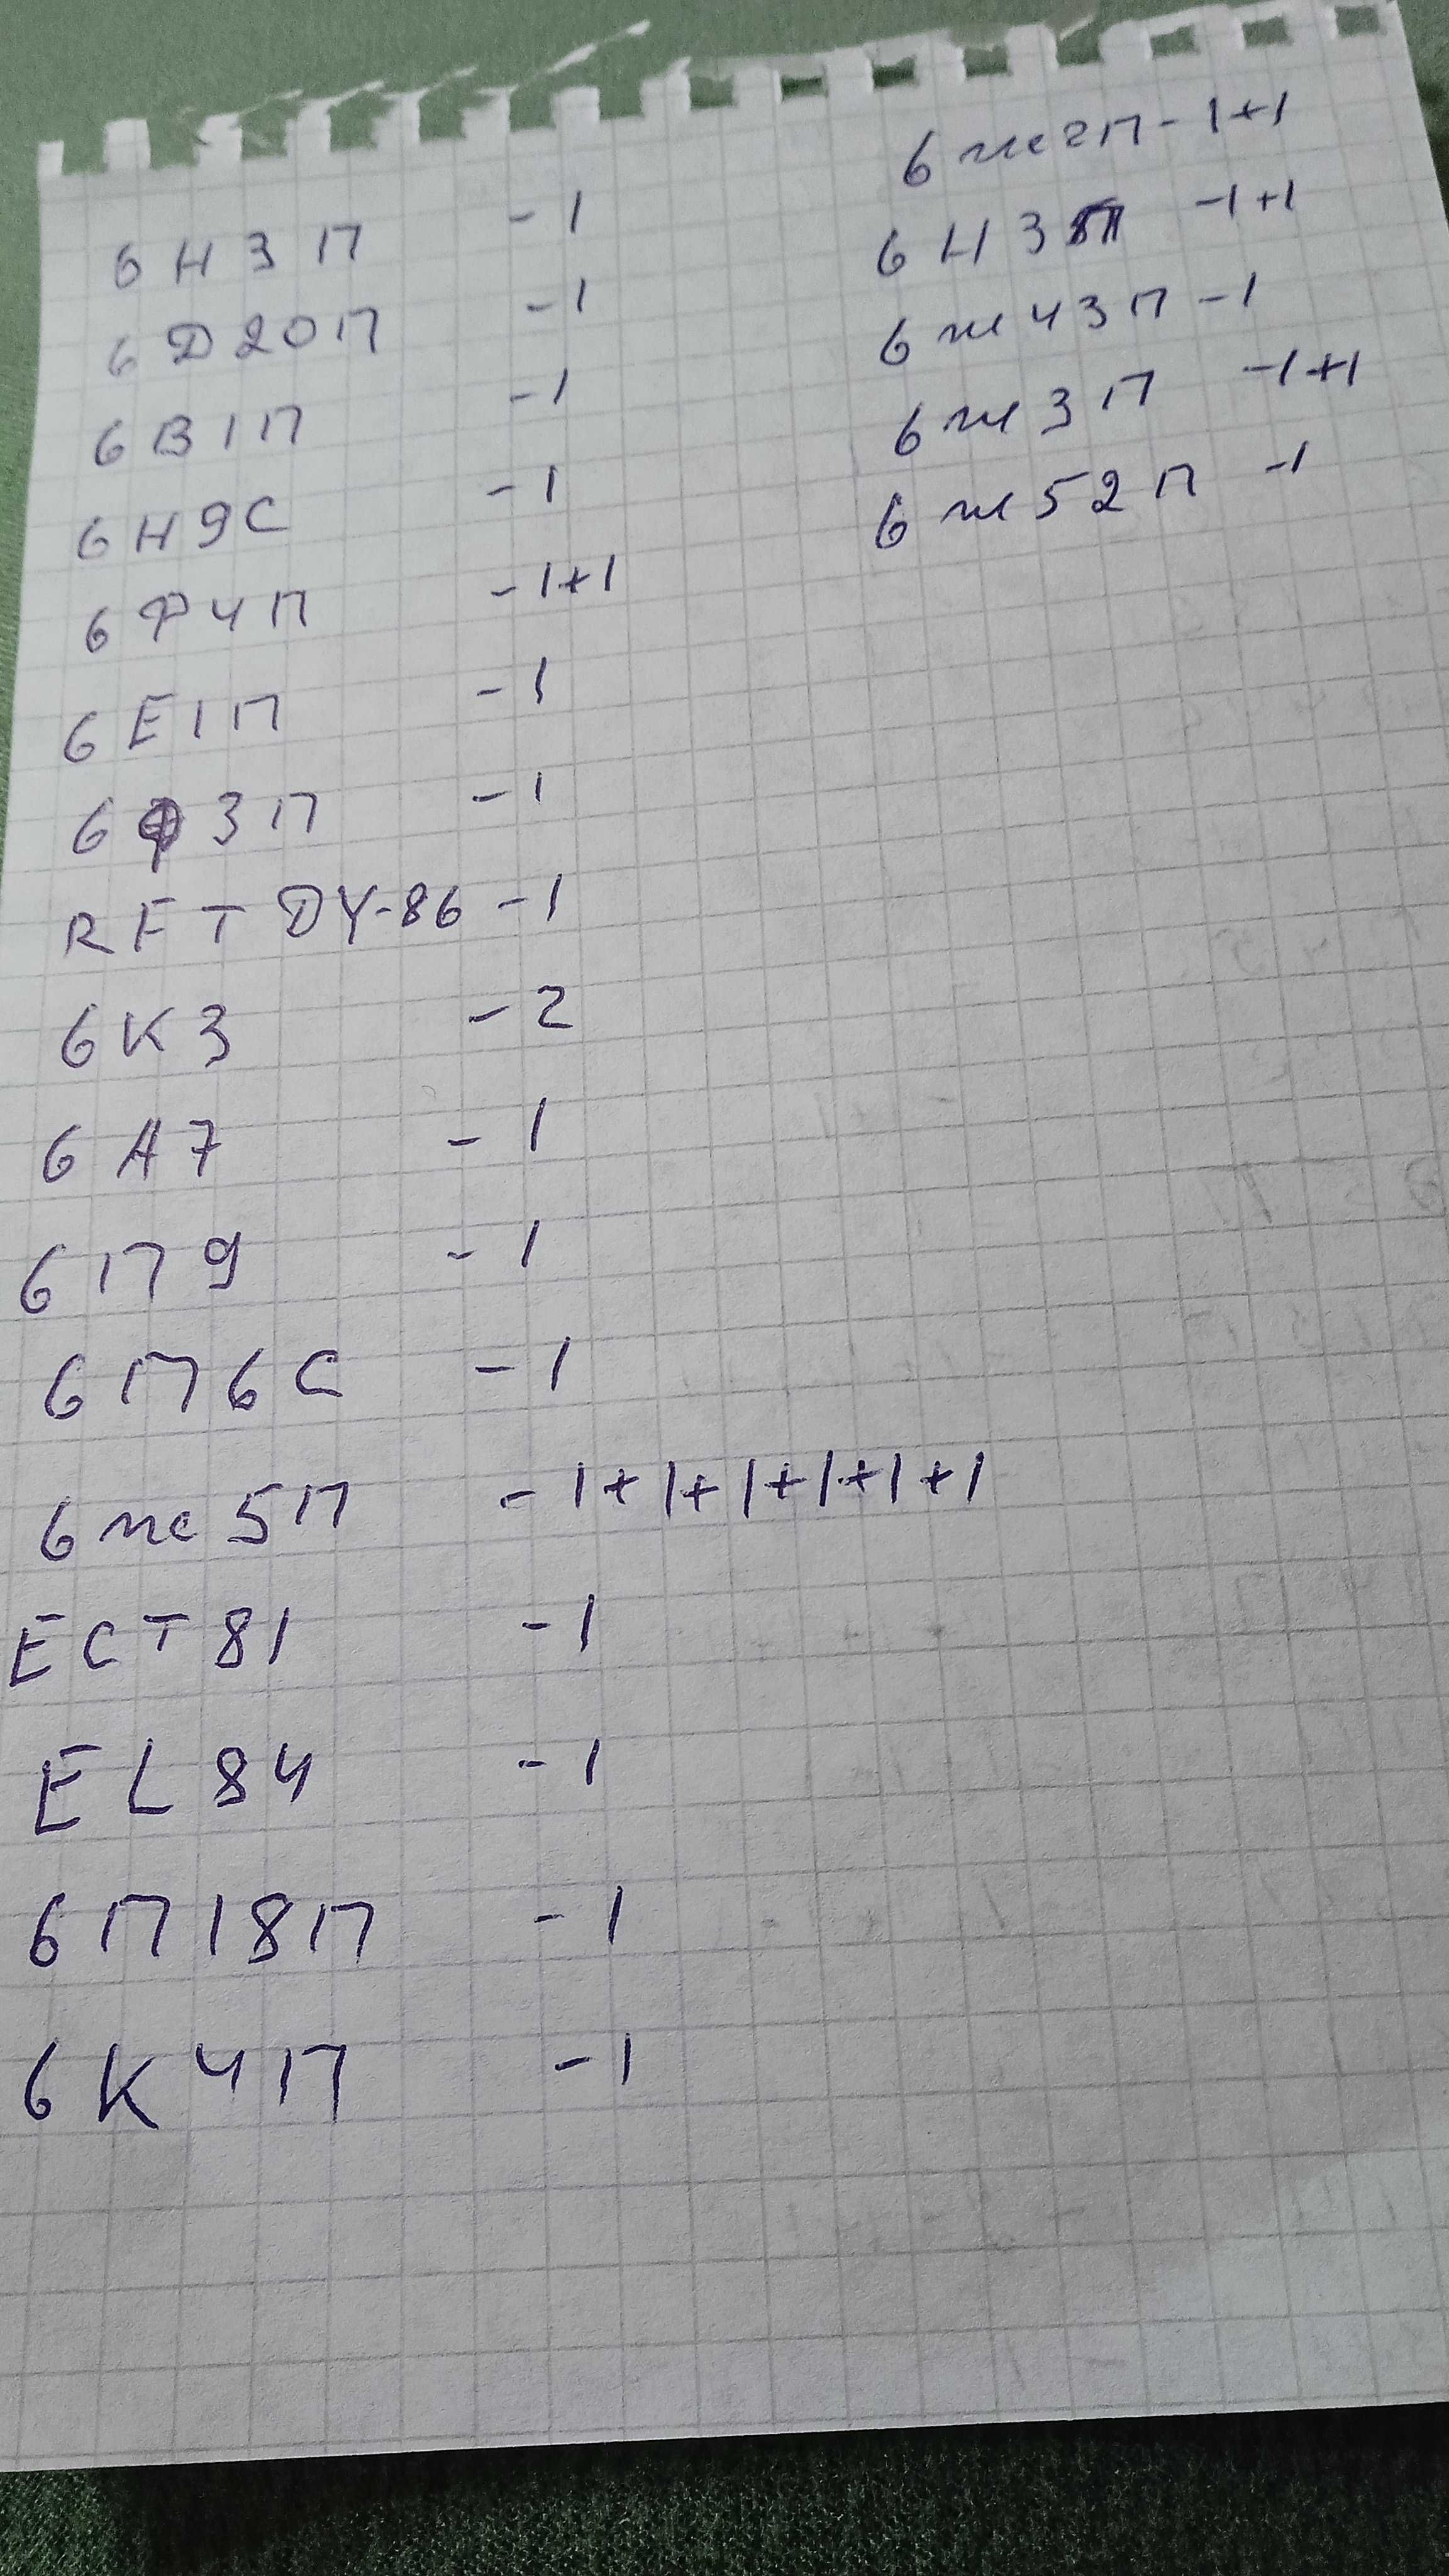 6Н3П -1
6D20П -1
6В1П -1
6Н9С -1
6Р4П -1+1
6Е1П -1
6Ф3П -1
RFT DY-86 -1
6К3 -2
6А7 -1
6П9 -1
6П6С -1
6ж5П -1+1+1+1+1+1
ECT81 -1
EL84 -1
6П18П -1
6К4П -1
6ж2П -1+1
6Н3П -1+1
6ж43П -1
6ж3П -1+1
6ж52П -1